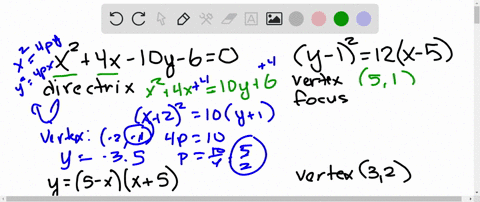 x² = 4py
y² = 4px
x² + 4x - 10y - 6 = 0
directrix
x² + 4x +4 = 10y + 6 +4
(x+2)² = 10(y+1)
vertex: (-2, -1)
4p = 10
y = -3.5
p = 10/4 5/2
y = (5-x)(x+5)
(y-1)² = 12(x-5)
vertex (5, 1)
focus
vertex (3, 2)